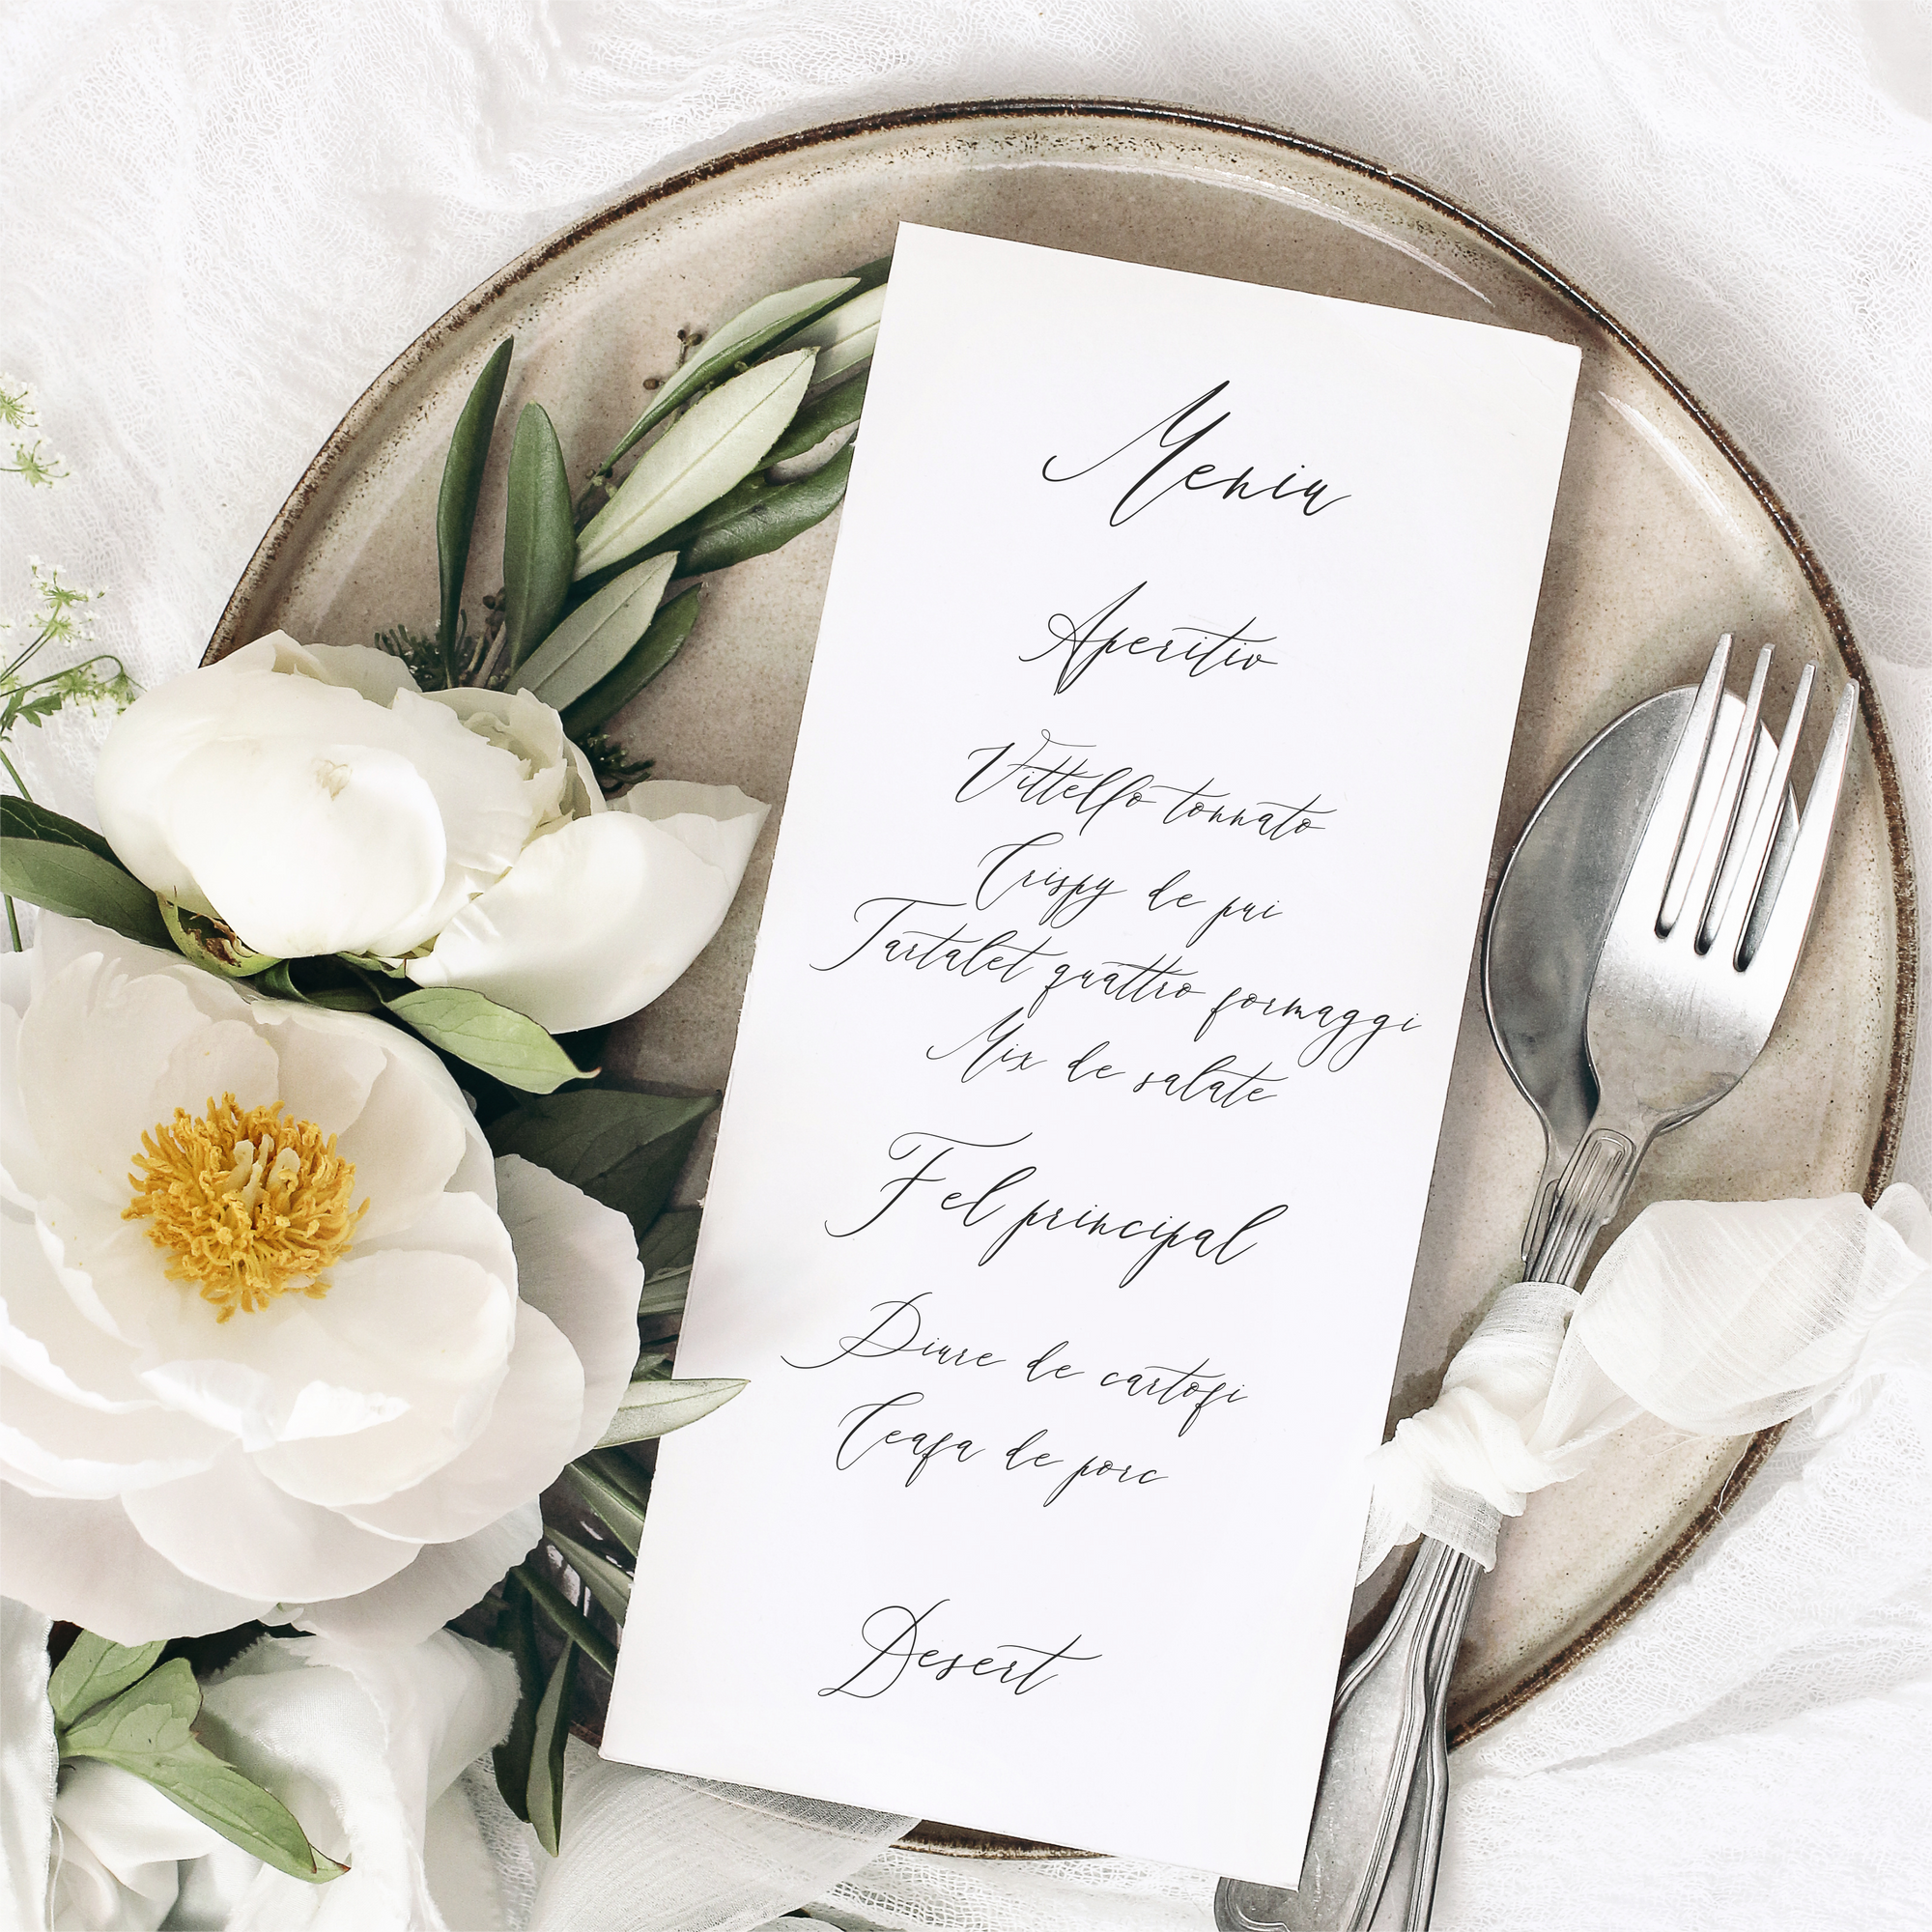 Meniu
Aperitiv
Vittello tonnato
Crispy de pui
Tartalet quattro formaggi
Mix de salate
Fel principal
Piure de cartofi
Ceafa de porc
Desert